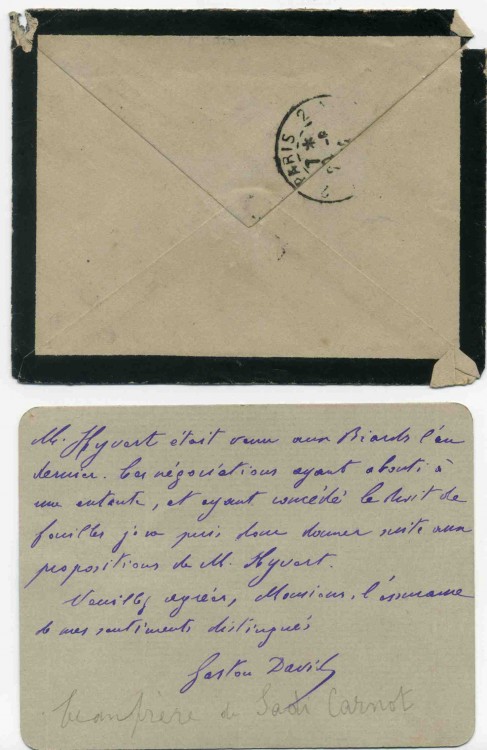 PARIS 2
M. Hyvert était venu aux Biards l'an
dernier. Ces négociations ayant abouti à
une entente, et ayant concédé le droit de
fouilles je ne puis donc donner suite aux
propositions de M. Hyvert.
Veuillez agréer, Monsieur, l'assurance
de mes sentiments distingués
Gaston David
beaufrère de Sadi Carnot